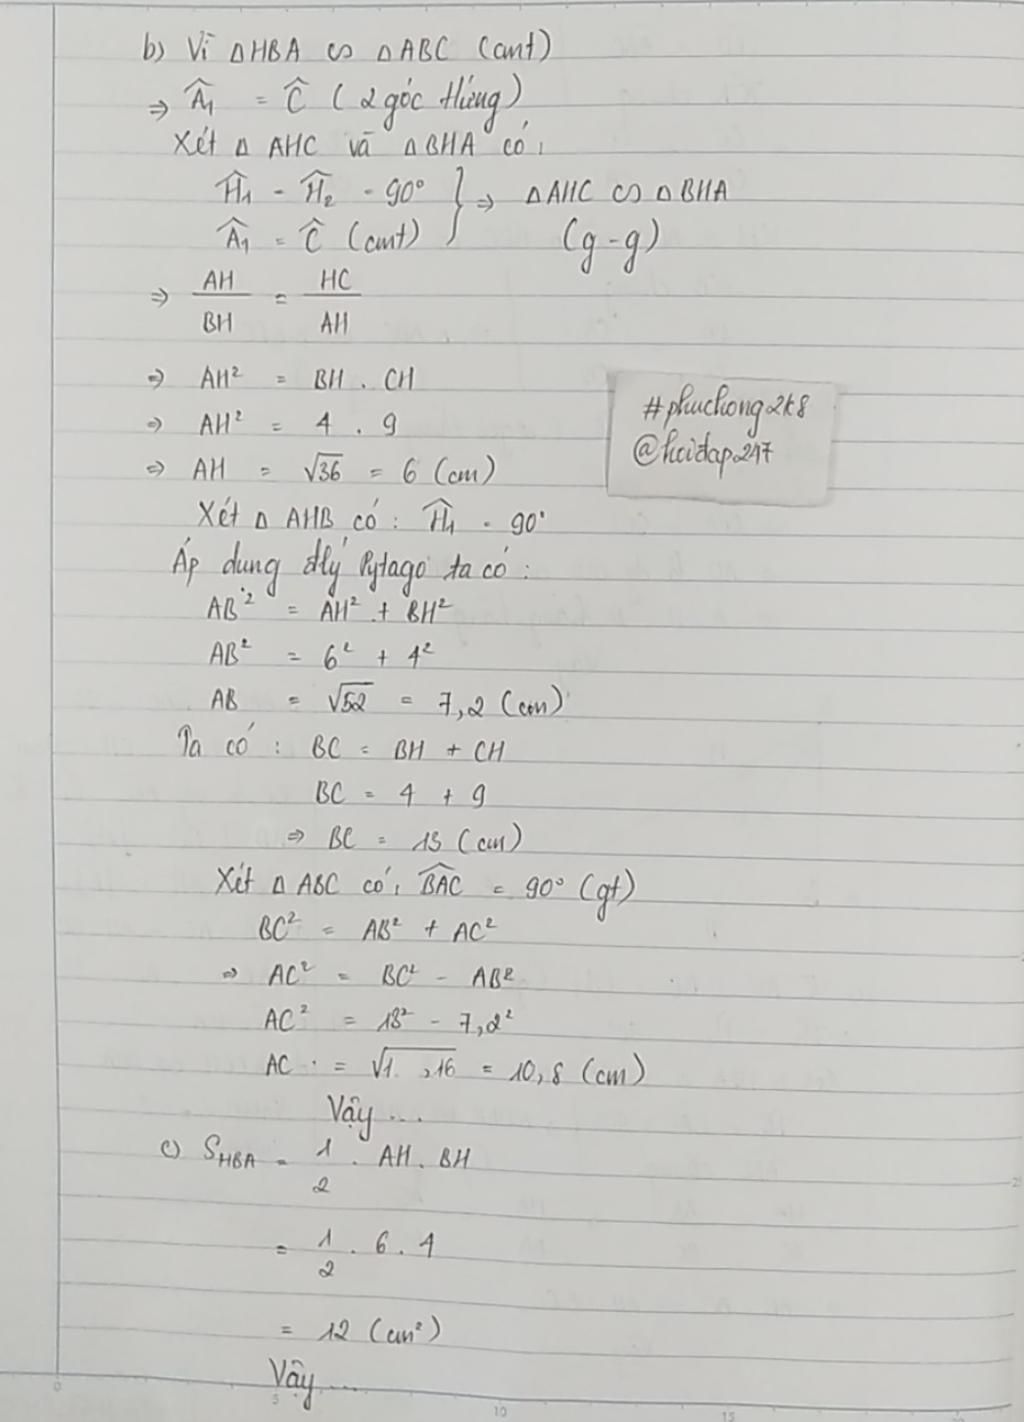 b) Vì ΔHBA ∽ ΔABC (cmt)
⇒ Â₁ = Ĉ (2 góc t/ứng)
Xét Δ AHC và ΔBHA có:
Ĥ₁ = Ĥ₂ = 90° } ⇒ ΔAHC ∽ ΔBHA
Â₁ = Ĉ (cmt) (g-g)
⇒ AH/BH = HC/AH
⇒ AH² = BH . CH
⇒ AH² = 4 . 9
⇒ AH = √36 = 6 (cm)
#phuchong2k8
@hoidap247
Xét Δ AHB có: Ĥ₁ = 90°
Áp dung đlý Pytago ta có:
AB² = AH² + BH²
AB² = 6² + 4²
AB = √52 = 7,2 (cm)
Ta có: BC = BH + CH
BC = 4 + 9
⇒ BC = 13 (cm)
Xét Δ ABC có: BAC = 90° (gt)
BC² = AB² + AC²
⇒ AC² = BC² - AB²
AC² = 13² - 7,2²
AC = = 10,8 (cm)
Vậy ...
c) S_HBA = 1/2 . AH . BH
= 1/2 . 6 . 4
= 12 (cm²)
Vậy ...